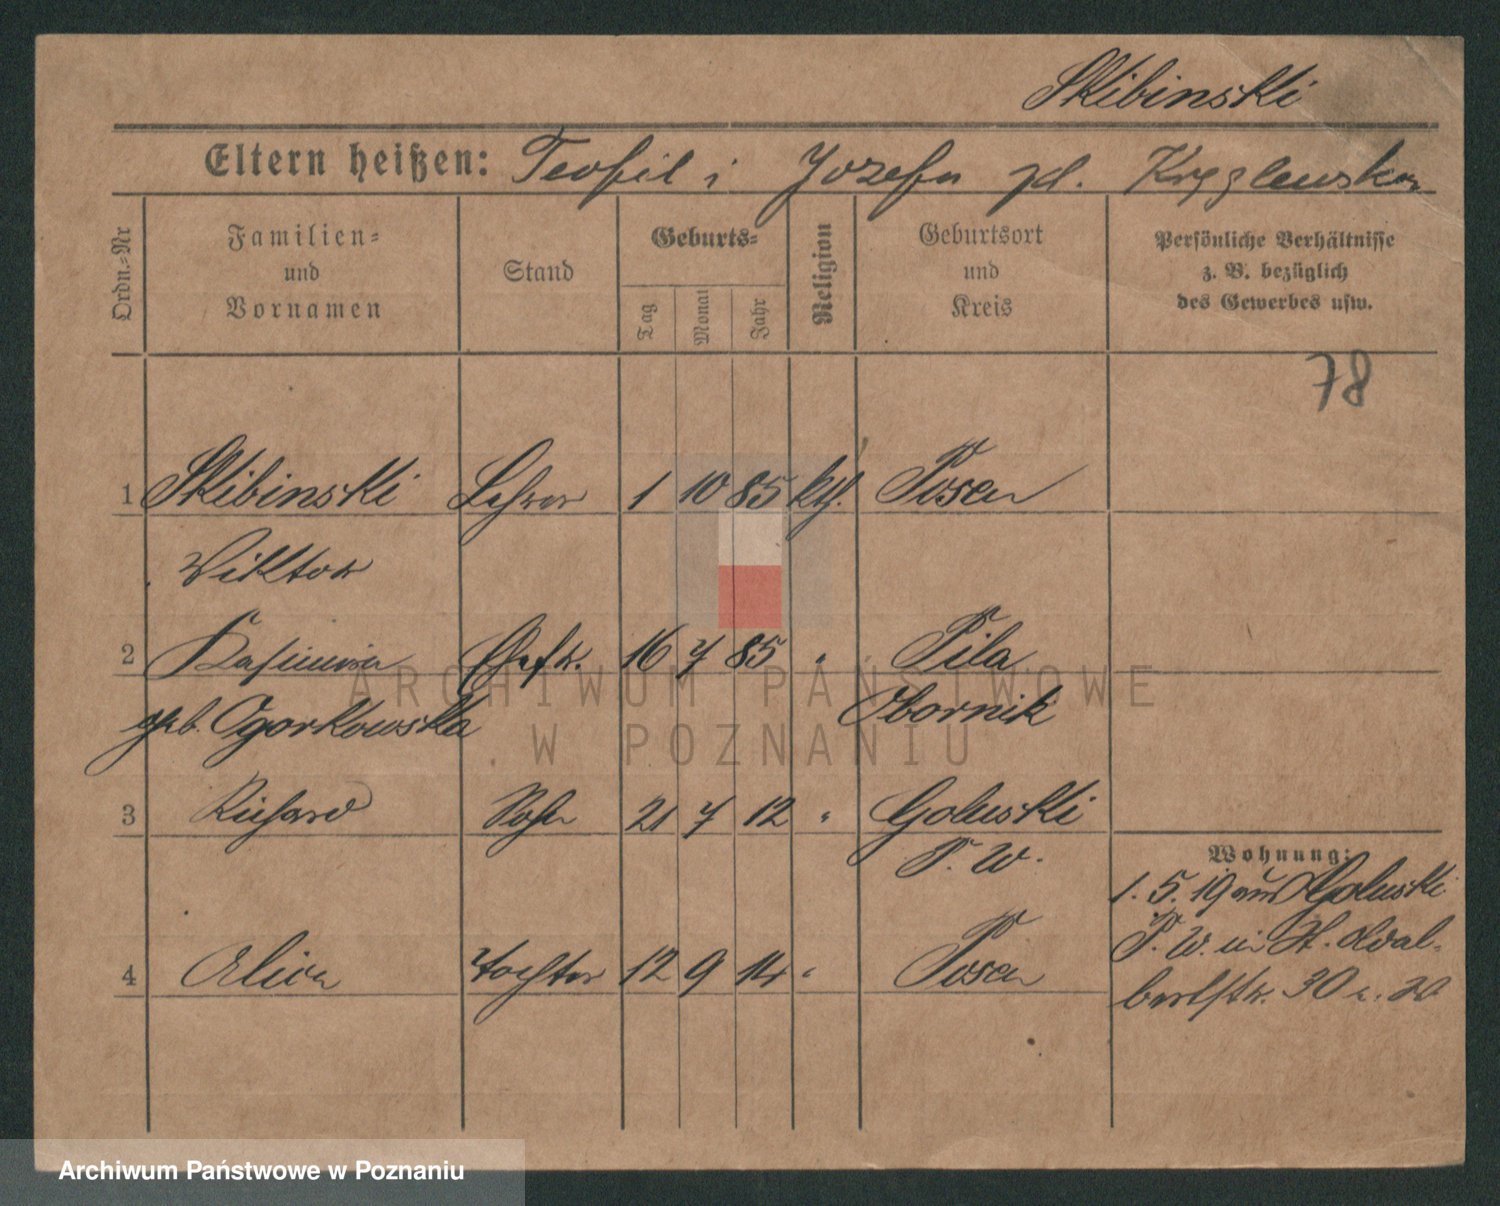 Skibinski
Eltern heißen: Teofil i Jozefa zd.
Ordn.-Nr
Familien- und Vornamen
Stand
Geburts-
Tag
Monat
Jahr
Religion
Geburtsort und Kreis
Persönliche Verhältnisse z. B. bezüglich des Gewerbes usw.
78
1 Skibinski Lehrer 1 10 85 kth. Posen
Wiktor
2 Kasimira Ehefr. 16 7 85 " Pila
geb. Ogorkowska Obornik
3 Richard Sohn 21 7 12 " Goluski
P. W.
Wohnung:
1. 5. 19 aus Goluski
P. W. in St. Adal-
bertstr. 30
4 Alice Tochter 12 9 14 " Posen
ARCHIWUM PAŃSTWOWE
W POZNANIU
Archiwum Państwowe w Poznaniu